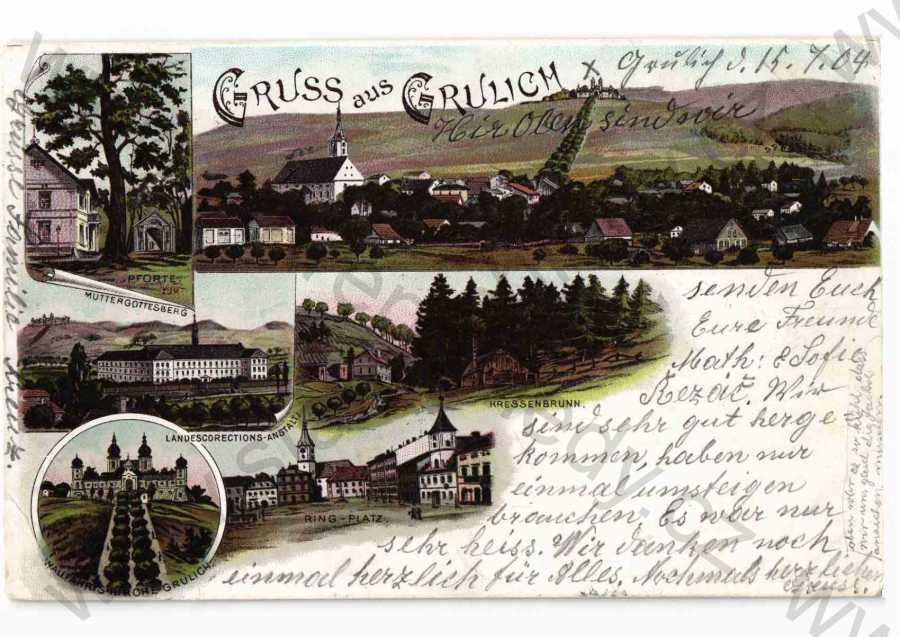 GRUSS AUS GRULICH
Grulich d. 15. 7. 04
Hir Oben sind wir
PFORTE
ZUM
MUTTERGOTTESBERG
LANDESCORECTIONS-ANSTALT
KRESSENBRUNN.
RING-PLATZ.
WALLFAHRTSKIRCHE GRULICH.
senden Euch
Eure Freunde
Math: & Sofie
Řezáč. Wir
sind sehr gut herge
kommen, haben nur
einmal umsteigen
brauchen. Es war nur
sehr heiss. Wir danken noch
einmal herzlich für Alles. Nochmals herzlichen
Gruss!
oben aber es so kühl, dass
wir uns
anziehen mussten.
Familie